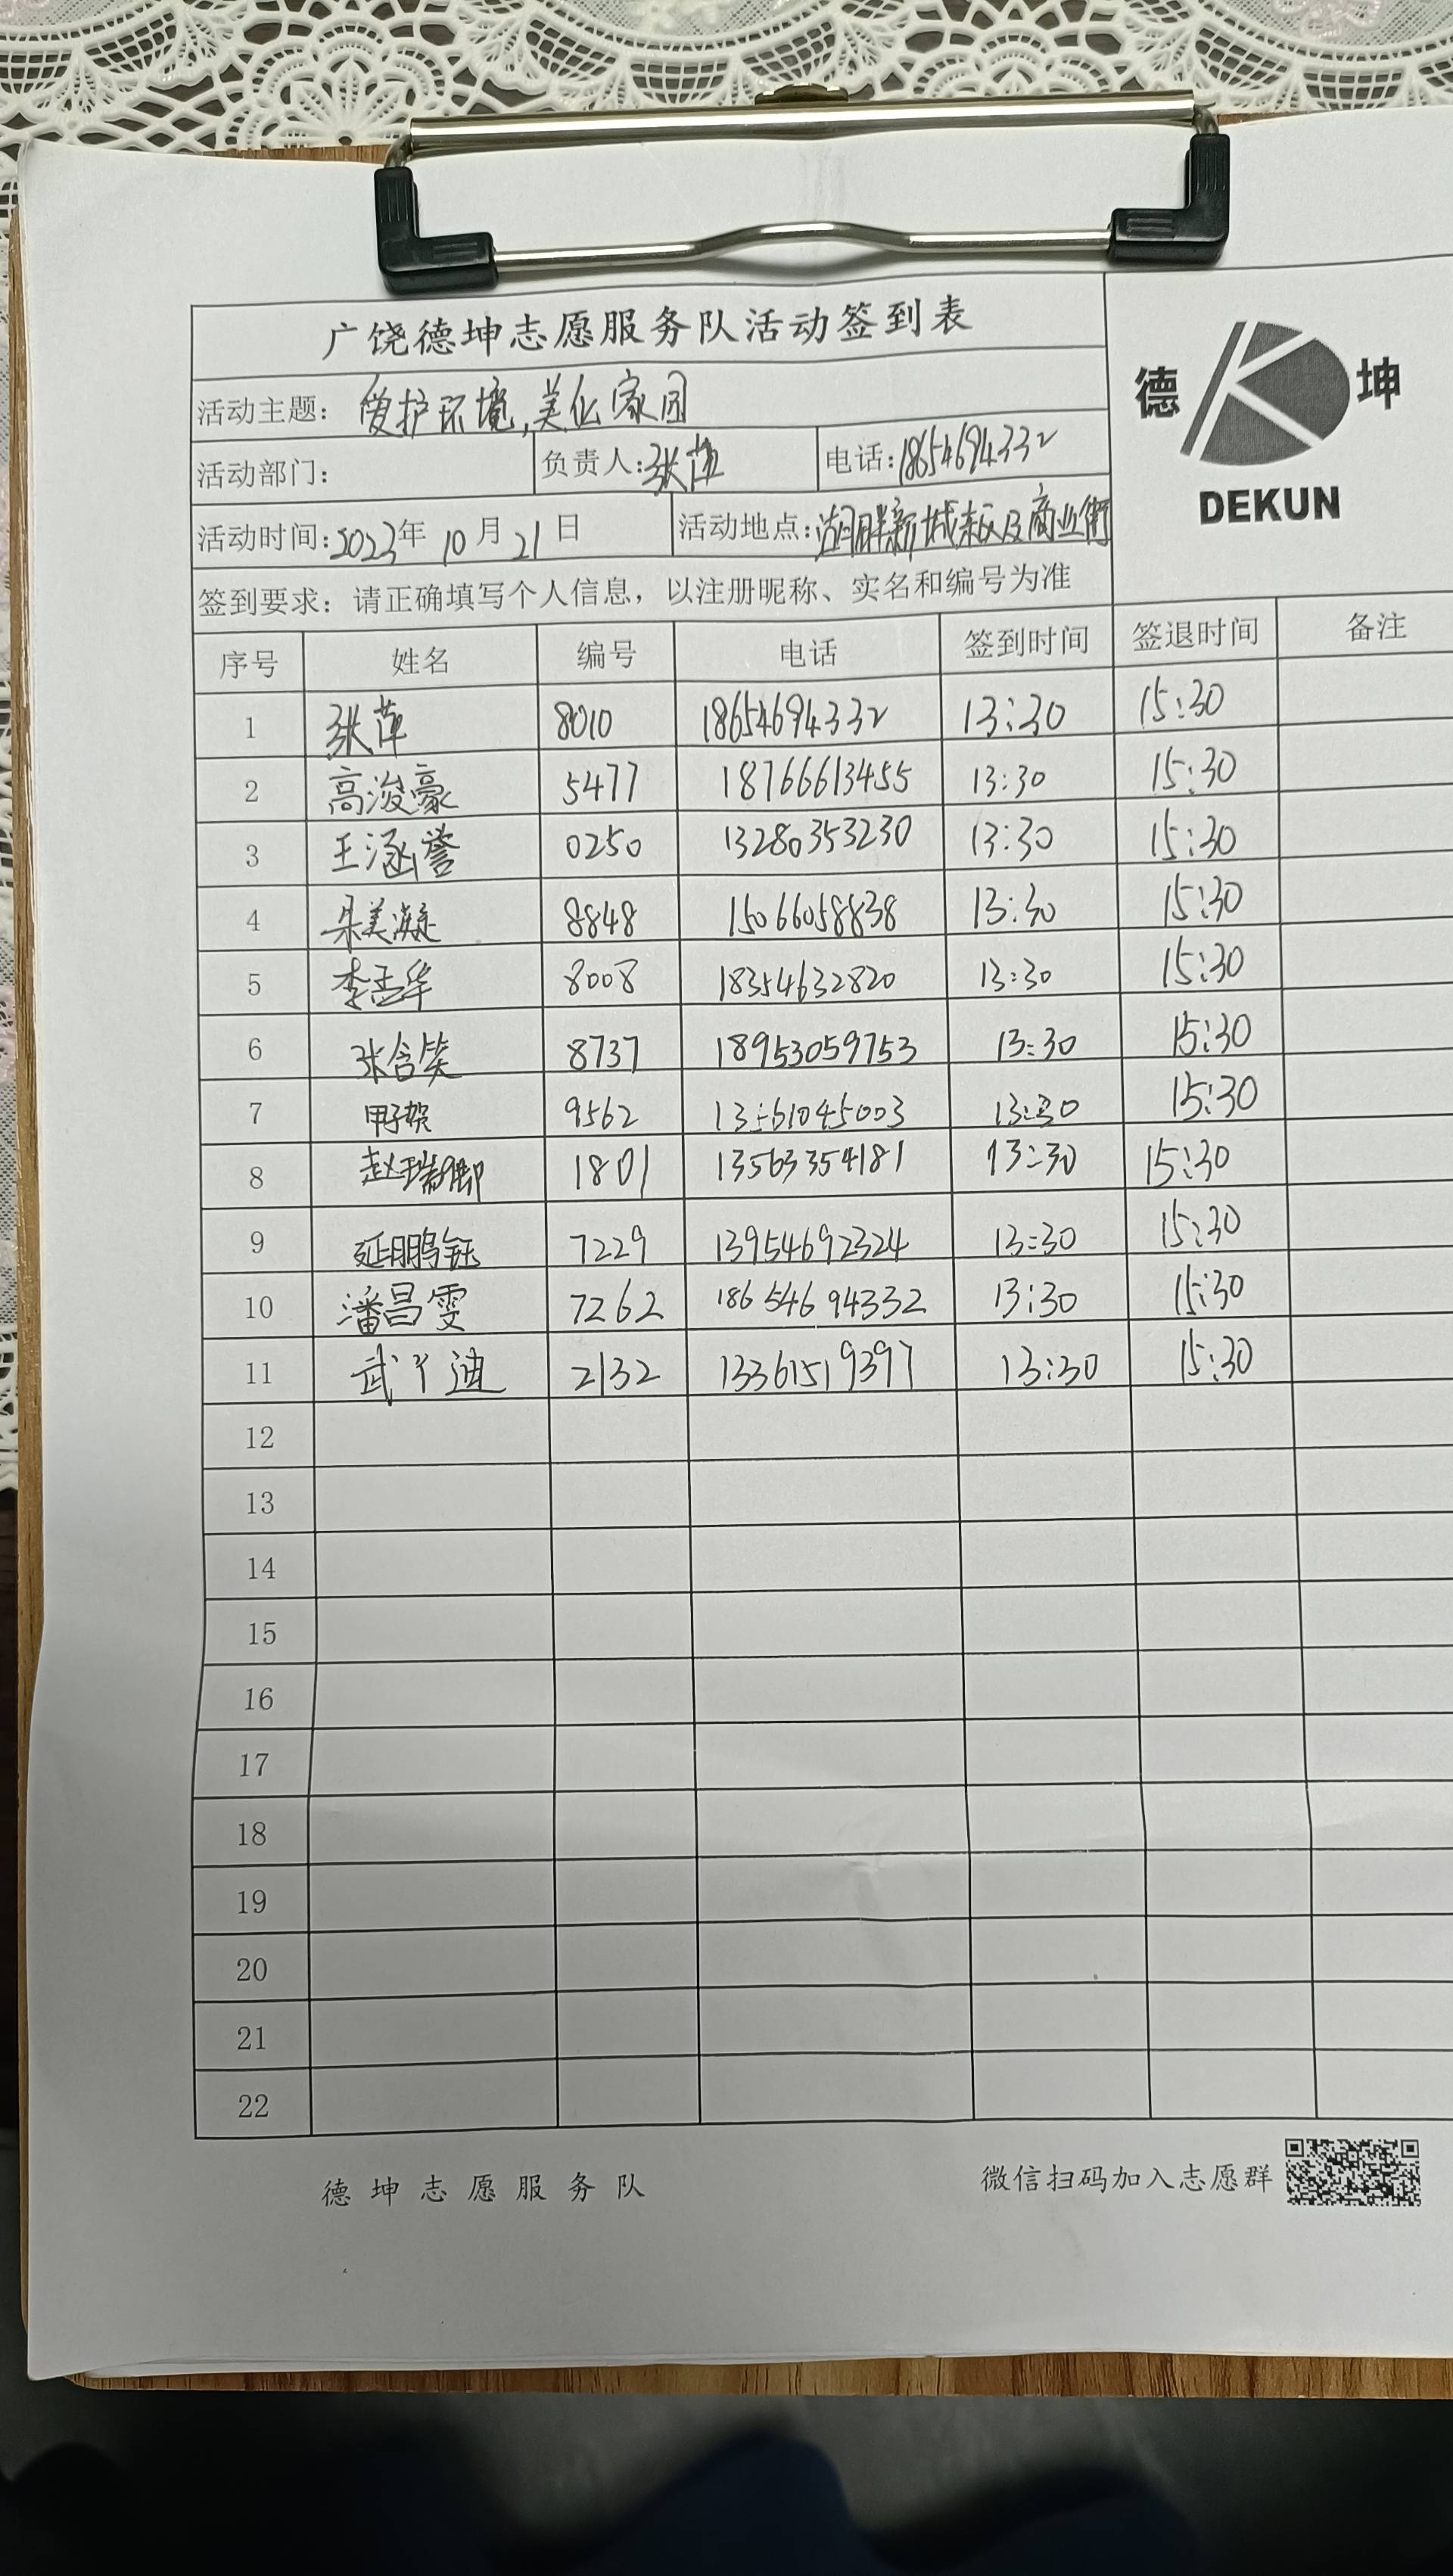 广饶德坤志愿服务队活动签到表
德 坤
DEKUN
活动主题: 爱护环境,美化家园
活动部门: 负责人:张萍 电话:18654694332
活动时间:2023年 10月 21日 活动地点:湖畔新城 及商业街
签到要求: 请正确填写个人信息, 以注册昵称、实名和编号为准
序号 姓名 编号 电话 签到时间 签退时间 备注
1 张萍 8010 18654694332 13:30 15:30
2 高浚豪 5477 18766613455 13:30 15:30
3 王涵誉 0250 13280353230 13:30 15:30
4 8848 15066058838 13:30 15:30
5 李孟华 8008 18354632820 13:30 15:30
6 张含笑 8737 18953059753 13:30 15:30
7 9562 13:30 15:30
8 1801 13563354181 13:30 15:30
9 延鹏钰 7229 13954692324 13:30 15:30
10 潘昌雯 7262 18654694332 13:30 15:30
11 武丫迪 2132 13361519397 13:30 15:30
12
13
14
15
16
17
18
19
20
21
22
德坤志愿服务队 微信扫码加入志愿群